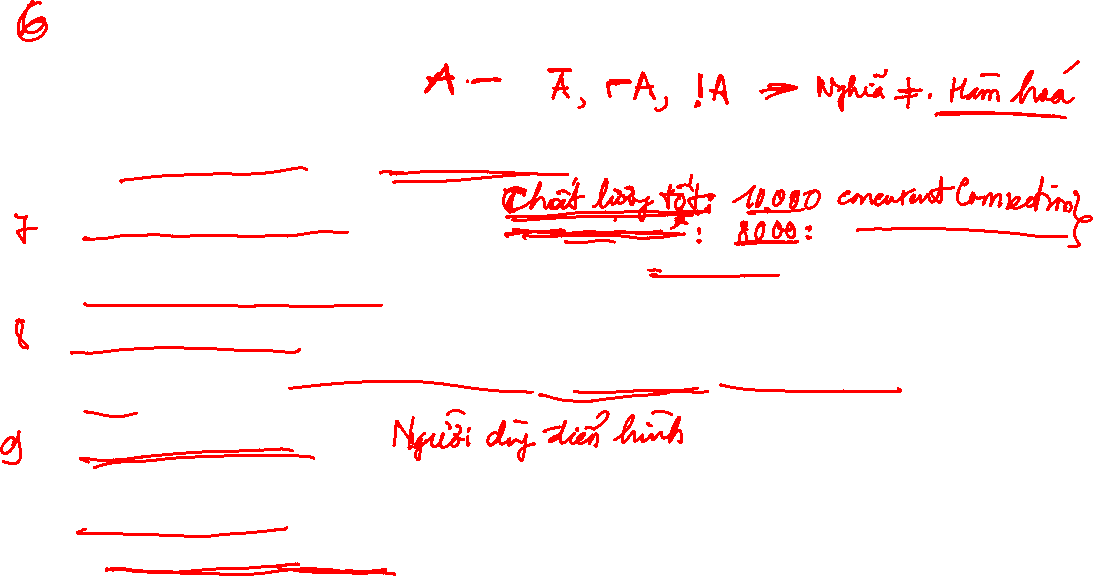 6
A.— Ā, ¬A, !A => Nghĩa ≠. Hàm hoá
Chất lượng tốt: 10.000 concurent Connection
7 : 8000:
8
Người dùng điển hình
9